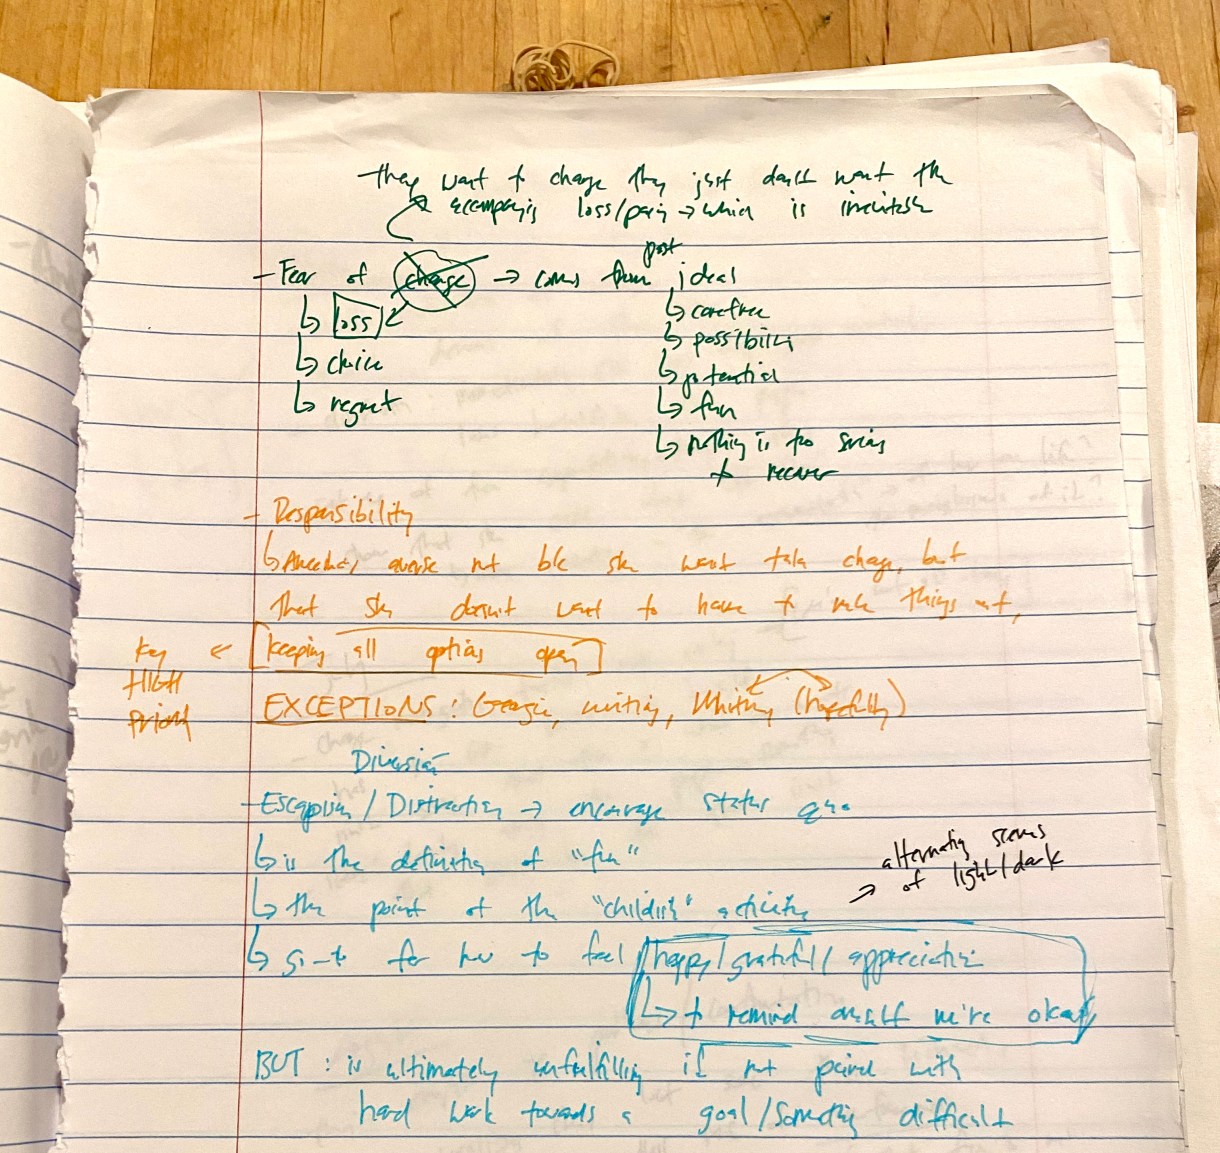 they want to change they just don't want the
accompanying loss/pain → which is inevitable
- Fear of change → comes from past ideal
↳ loss
↳ choice
↳ regret
↳ carefree
↳ possibility
↳ potential
↳ fun
↳ nothing is too serious
to recover
- Responsibility
↳ averse not b/c she won't take charge, but
that she doesn't want to have to rule things out,
keeping all options open
key
HIGH
Priority
EXCEPTIONS: Georgie, writing, Whitney (hopefully)
Diversion
- Escapism / Distraction → encourage status quo
↳ is the definition of "fun"
↳ the point of the "childish" activities
→ alternating scenes
of light/dark
↳ go-to for her to feel happy/grateful/appreciation
↳ to remind oneself we're okay
BUT: is ultimately unfulfilling if not paired with
hard work towards a goal/something difficult